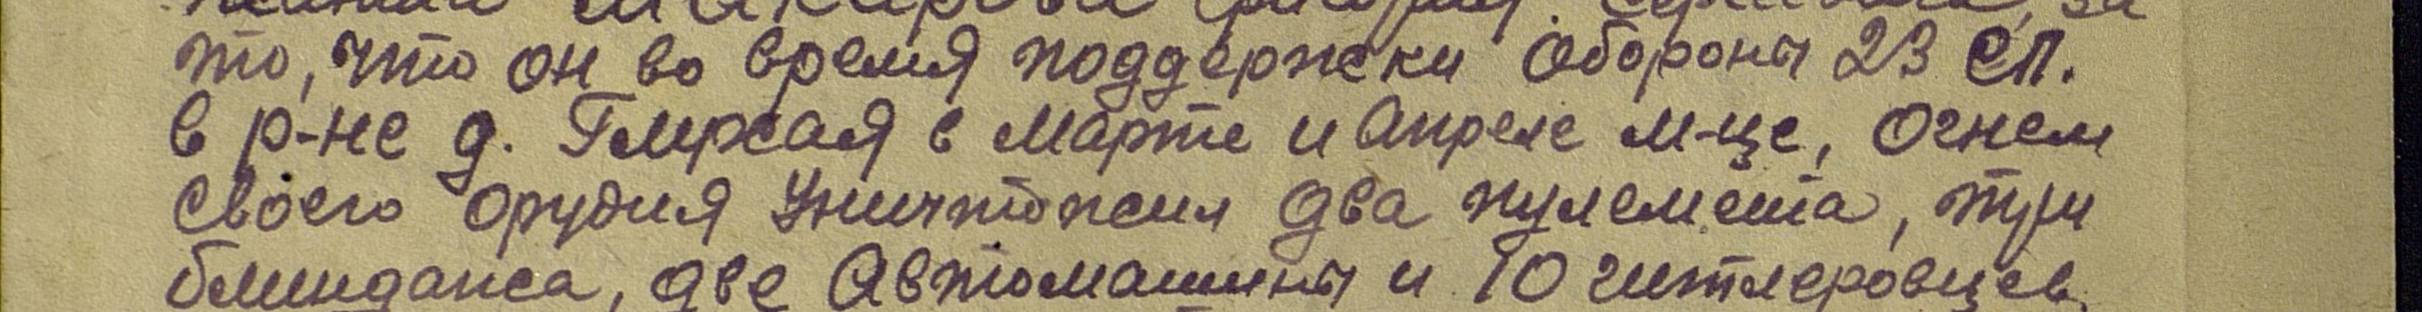 то, что он во время поддержки обороны 23 СП.
в р-не д. в марте и Апреле м-це, огнем
своего орудия Уничтожил два пулемета, три
блиндажа, две Автомашины и 10 гитлеровцев.